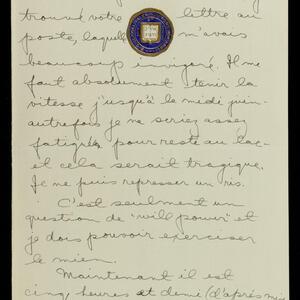 trouvé votre lettre au
poste, laquelle m'avais
beaucoup invigoré. Il me
faut absolument tenir la
vitesse j'usqu'à le midi juin-
autrefois je ne seriez assez
fatigrée pour reste au lac-
et cela serait tragique.
Je ne puis represser un ris.
C'est seulment un
question de "will power" et
je dois pouvoir exerciser
le mien.
Maintenant il est
cinq heures et demi (d'après mi